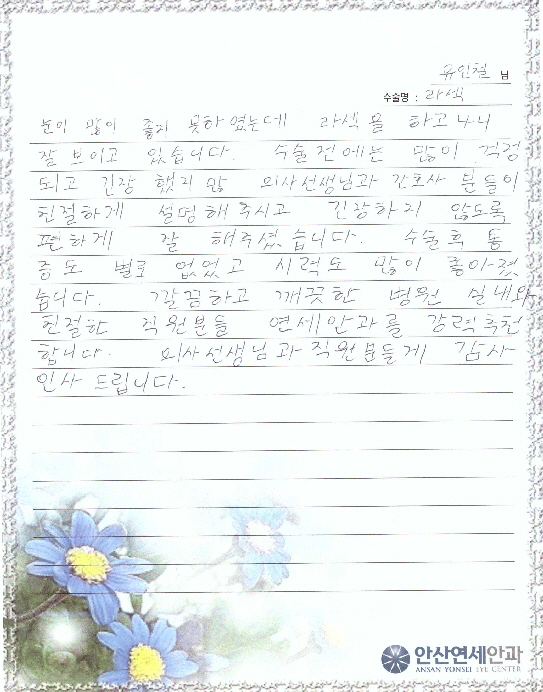 유인철 님
수술명 : 라섹
눈이 많이 좋지 못하였는데 라섹을 하고 나니
잘 보이고 있습니다. 수술전에는 많이 걱정
되고 긴장 했지만 의사선생님과 간호사 분들이
친절하게 설명해 주시고 긴장하지 않도록
편하게 잘 해주셨습니다. 수술후 통
증도 별로 없었고 시력도 많이 좋아졌
습니다. 깔끔하고 깨끗한 병원 실내와
친절한 직원분들 연세안과를 강력추천
합니다. 의사선생님과 직원분들게 감사
인사 드립니다.
안산연세안과
ANSAN YONSEI EYE CENTER